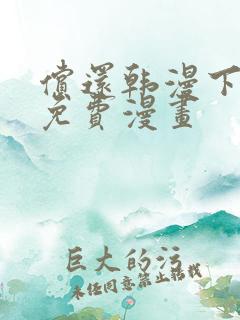 償還韩漫下
免費漫畫
巨大的污
未经同意禁止转载